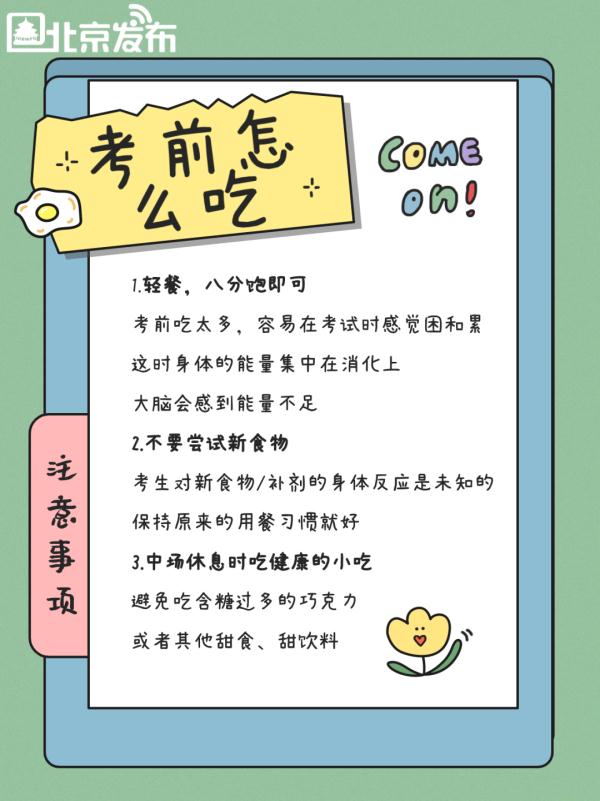 北京发布
考前怎
么吃
COME
ON!
1.轻餐，八分饱即可
考前吃太多，容易在考试时感觉困和累
这时身体的能量集中在消化上
大脑会感到能量不足
2.不要尝试新食物
考生对新食物/补剂的身体反应是未知的
保持原来的用餐习惯就好
3.中场休息时吃健康的小吃
避免吃含糖过多的巧克力
或者其他甜食、甜饮料
注意事项